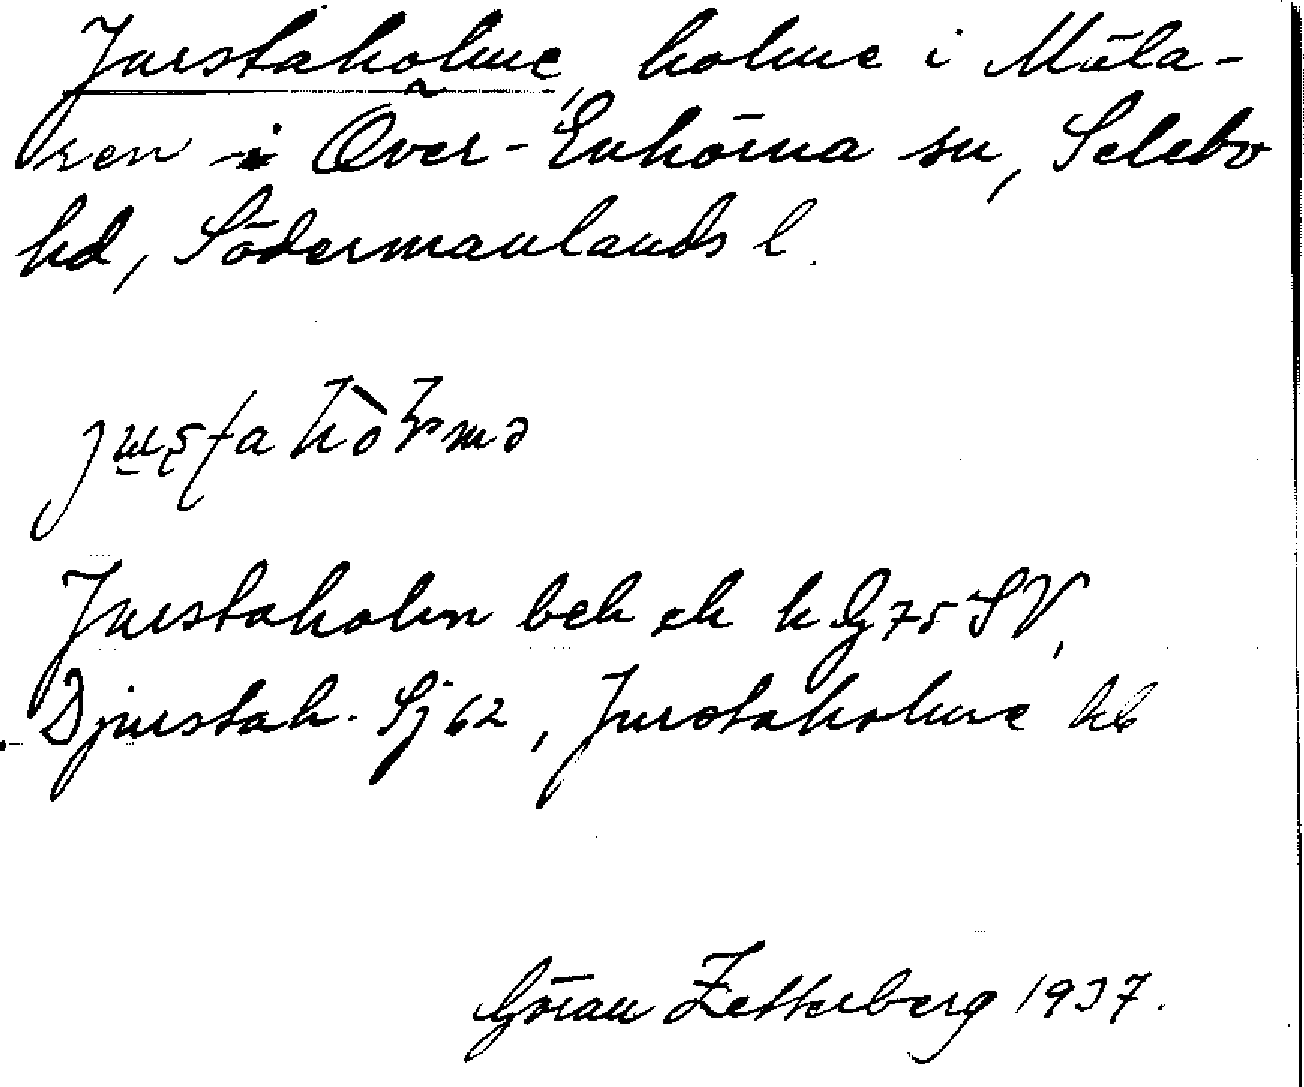 Jurstaholme, holme i Mäla-
ren i Över-Enhörna sn, Selebo
hd, Södermanlands l.
Jurstaholm bek ek k G 75 SV,
Djurstah. Sj 62, Jurstaholme kb
Göran Zetterberg 1937.